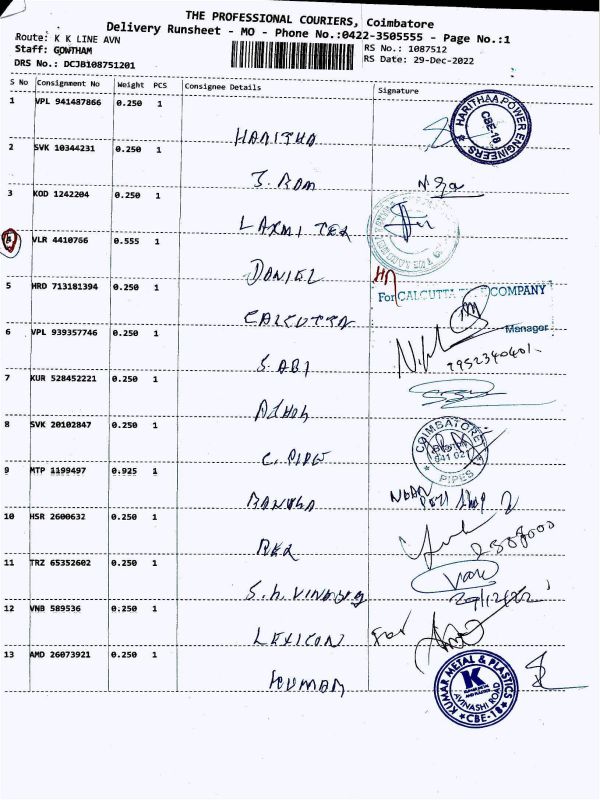 THE PROFESSIONAL COURIERS, Coimbatore
Delivery Runsheet - MO - Phone No.:0422-3505555 - Page No.:1
Route: K K LINE AVN
RS No.: 1087512
Staff: GOWTHAM
RS Date: 29-Dec-2022
DRS No.: DCJB108751201
S No Consignment No Weight PCS Consignee Details Signature
1 VPL 941487866 0.250 1
HARITHA
HARITHAA POWER ENGINEERS
CBE-18
2 SVK 10344231 0.250 1
J. RAM
3 KOD 1242204 0.250 1
LAXMI TEX
VLR 4410766 0.555 1
DANIEL
5 HRD 713181394 0.250 1
CALCUTTA
For CALCUTTA COMPANY
Manager
6 VPL 939357746 0.250 1
S. ABI
7952340401.
7 KUR 528452221 0.250 1
8 SVK 20102847 0.250 1
C. PIPE
COIMBATORE
641 021
PIPES
9 MTP 1199497 0.925 1
10 HSR 2600632 0.250 1
11 TRZ 65352602 0.250 1
29/12/22
12 VNB 589536 0.250 1
LEXICON
For
13 AMD 26073921 0.250 1
KUMAR
KUMAR METAL & PLASTICS
K
AVINASHI ROAD
CBE-18